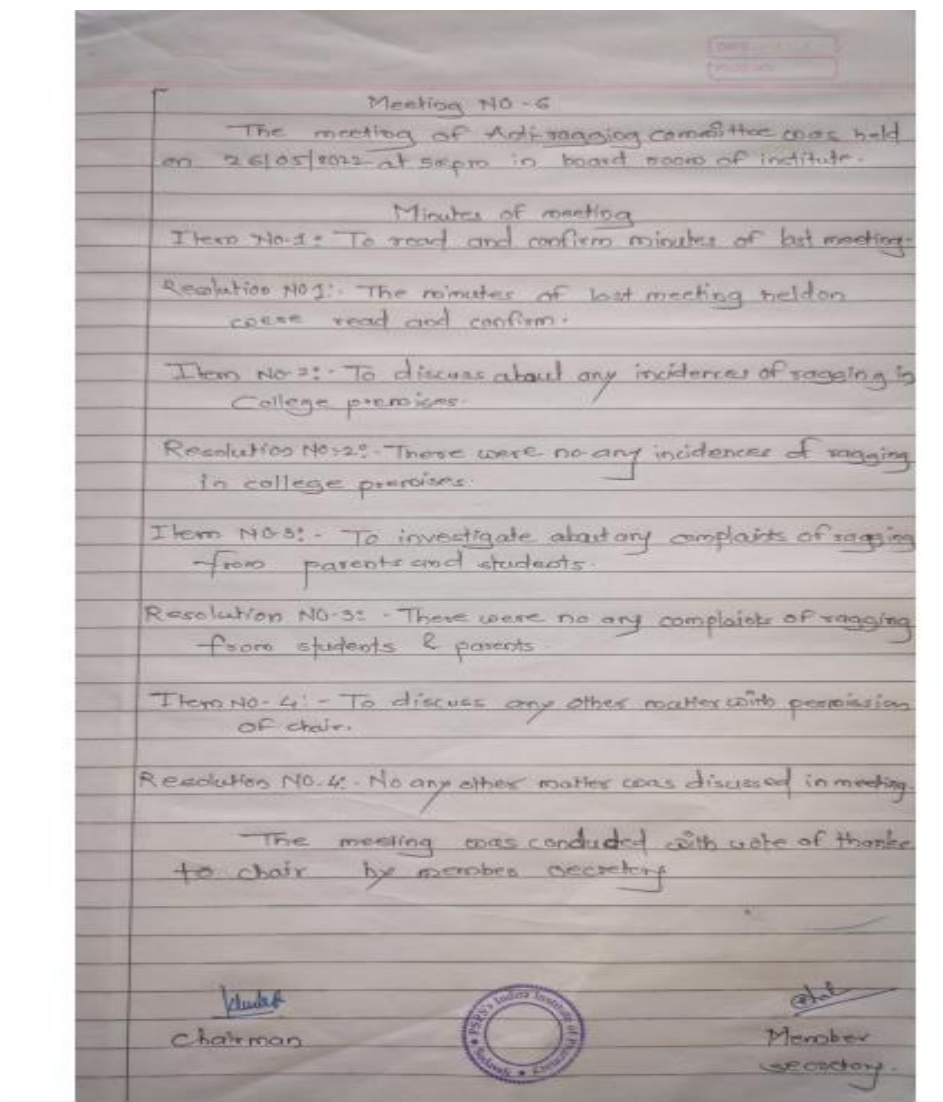 Meeting NO - 6
The meeting of Anti-ragging committee was held
on 26/05/2022 at 5 pm in board room of institute.
Minutes of meeting
Item No.1: To read and confirm minutes of last meeting.
Resolution NO 1:- The minutes of last meeting held on
were read and confirm.
Item No-2:- To discuss about any incidences of ragging in
College premises.
Resolution No:-2:- There were no any incidences of ragging
in college premises.
Item NO-3:- To investigate about any complaints of ragging
from parents and students.
Resolution NO-3: - There were no any complaints of ragging
from students & parents.
Item NO- 4:- To discuss any other matter with permission
of chair.
Resolution NO.4:- No any other matter was discussed in meeting.
The meeting was concluded with vote of thanks
to chair by member secretary
Chairman
PSPS's Indira Institute of Pharmacy
Sadavali
Member
secretary.